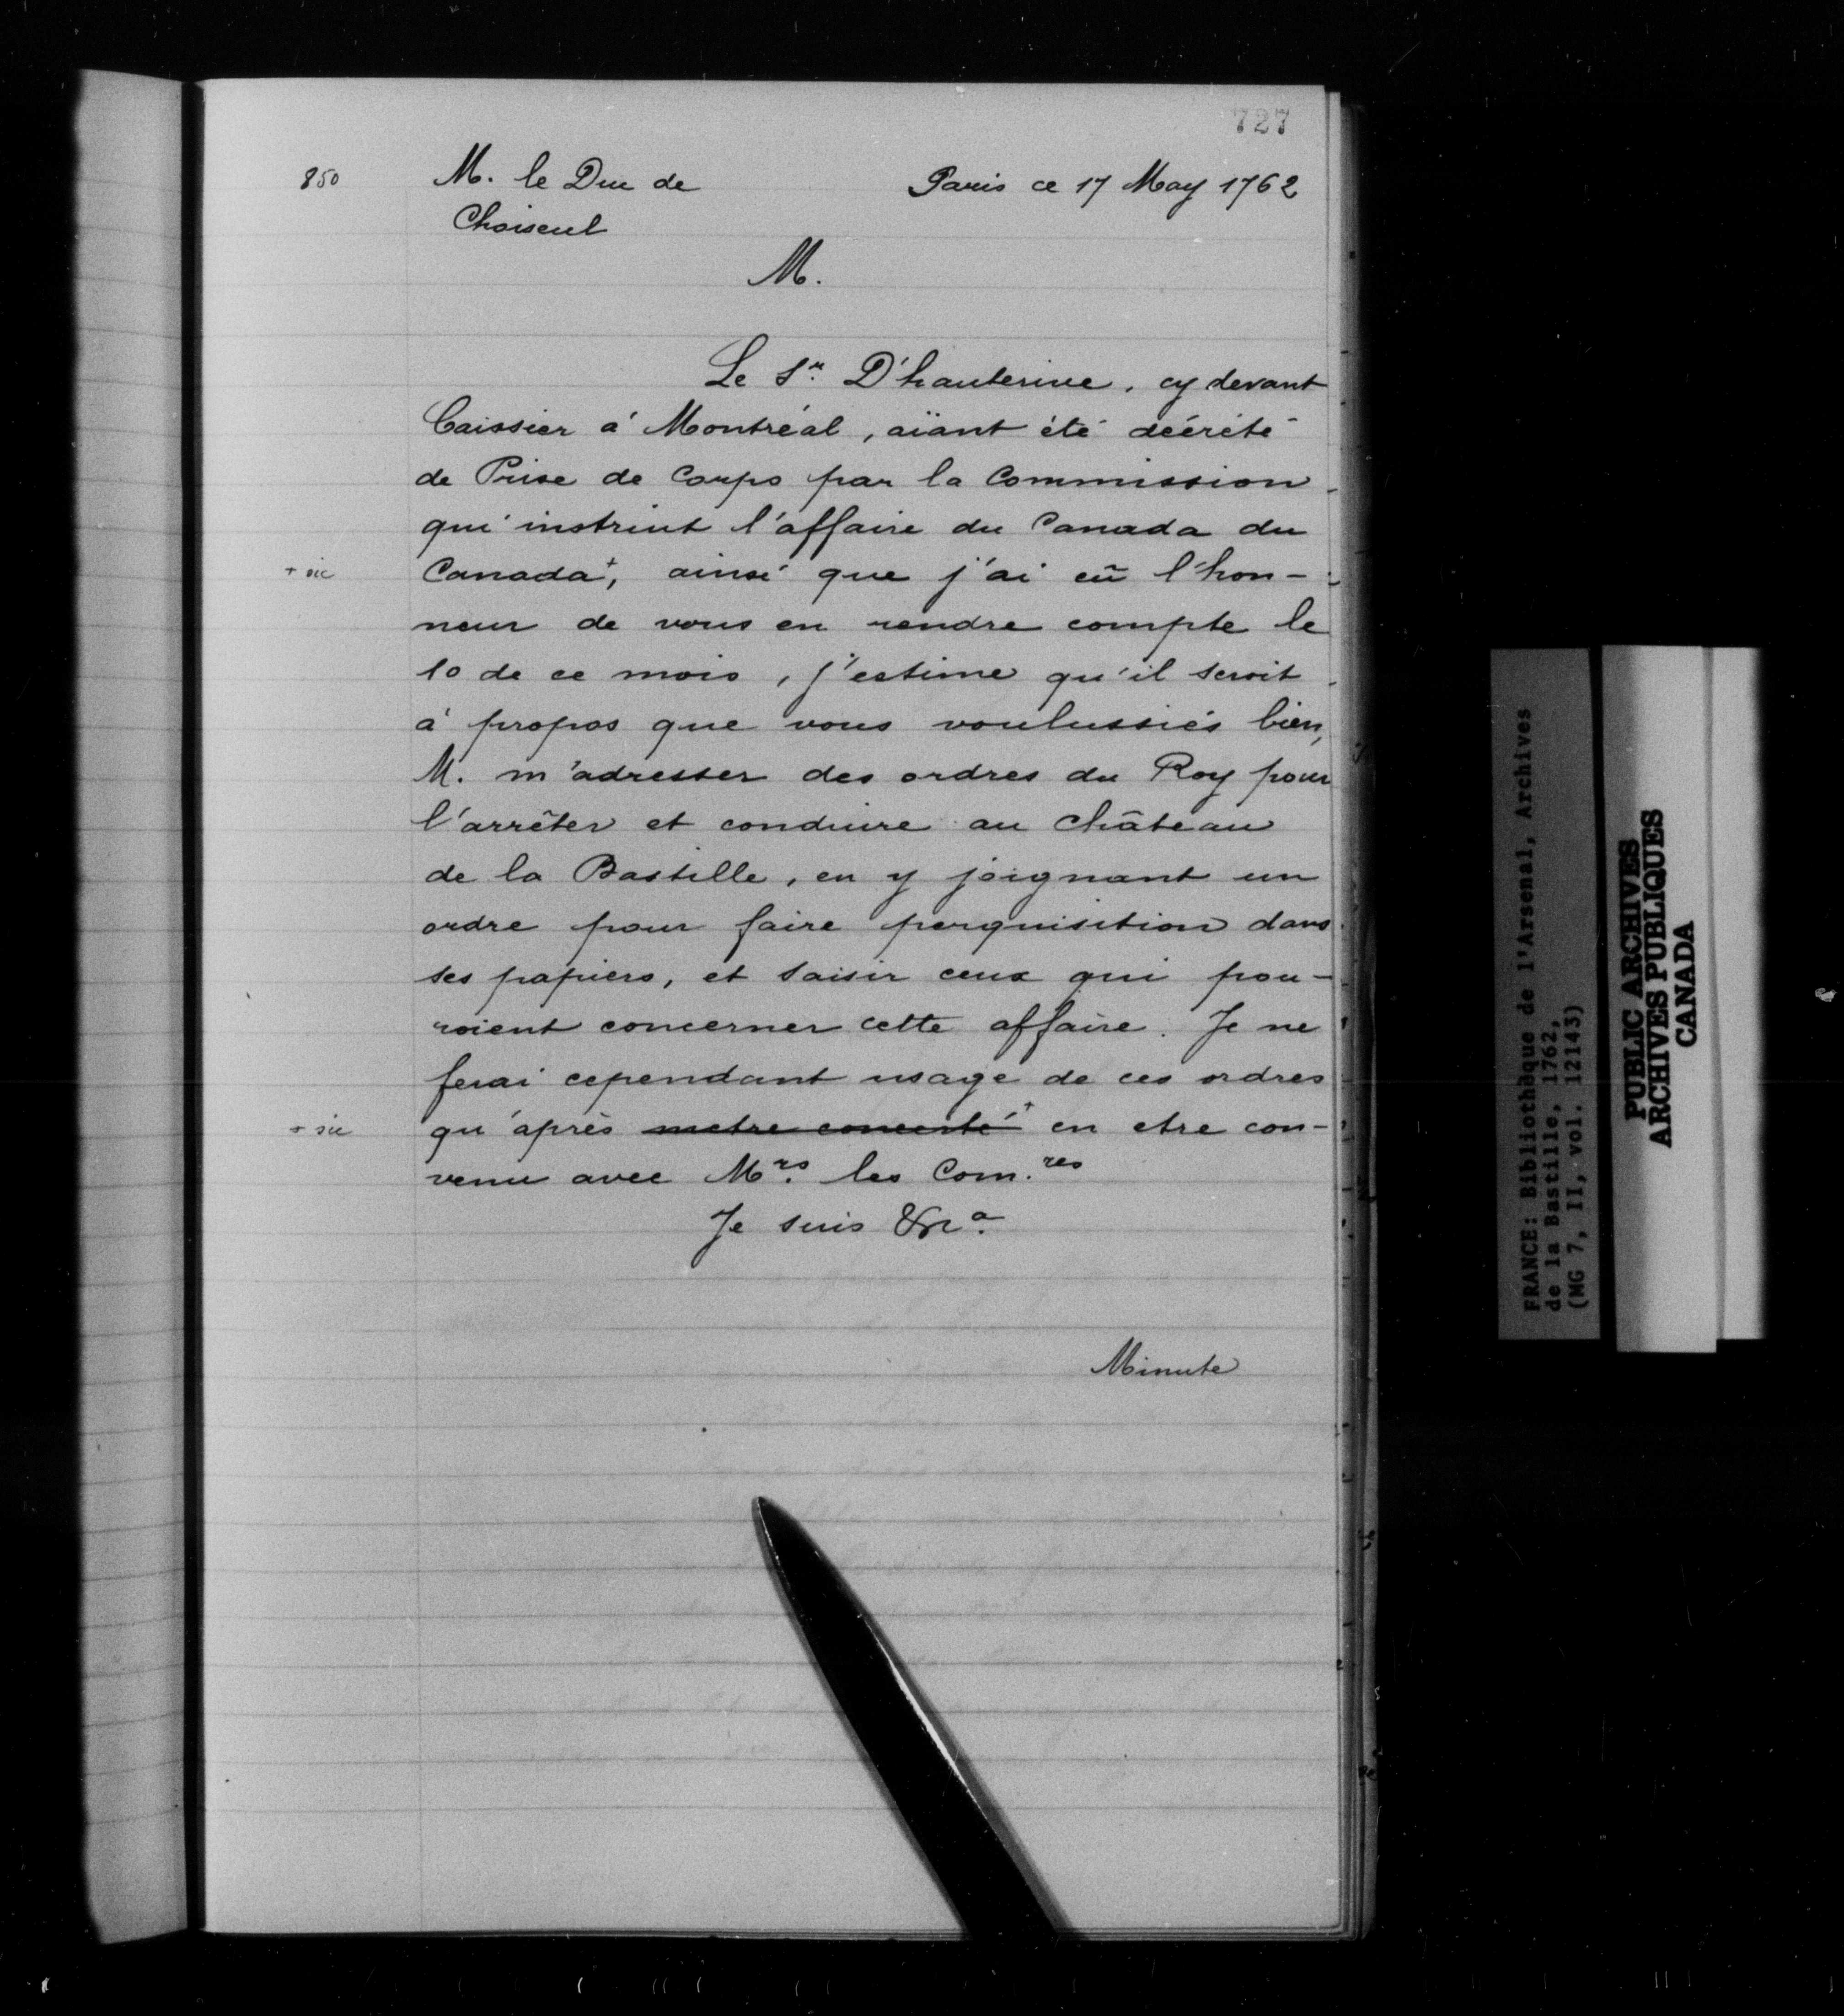 727
850 M. le Duc de Paris ce 17 May 1762
Choiseul
M.
Le Sr. D'hauterive, cy devant
Caissier à Montréal, aïant été décrété
de Prise de Corps par la Commission
qui instruit l'affaire du Canada du
+ sic Canada+, ainsi que j'ai eû l'hon-
neur de vous en rendre compte le
10 de ce mois, j'estime qu'il seroit
à propos que vous voulussiés bien,
M. m'adresser des ordres du Roy pour
l'arrêter et conduire au château
de la Bastille, en y joignant un
ordre pour faire perquisition dans
ses papiers, et saisir ceux qui pou-
roient concerner cette affaire. Je ne
ferai cependant usage de ces ordres
+ sic qu'après metre concerté+ en etre con-
venu avec Mrs. les Com.res
Je suis &a.
Minute
FRANCE: Bibliothèque de l'Arsenal, Archives
de la Bastille, 1762,
(MG 7, II, vol. 12143)
PUBLIC ARCHIVES
ARCHIVES PUBLIQUES
CANADA